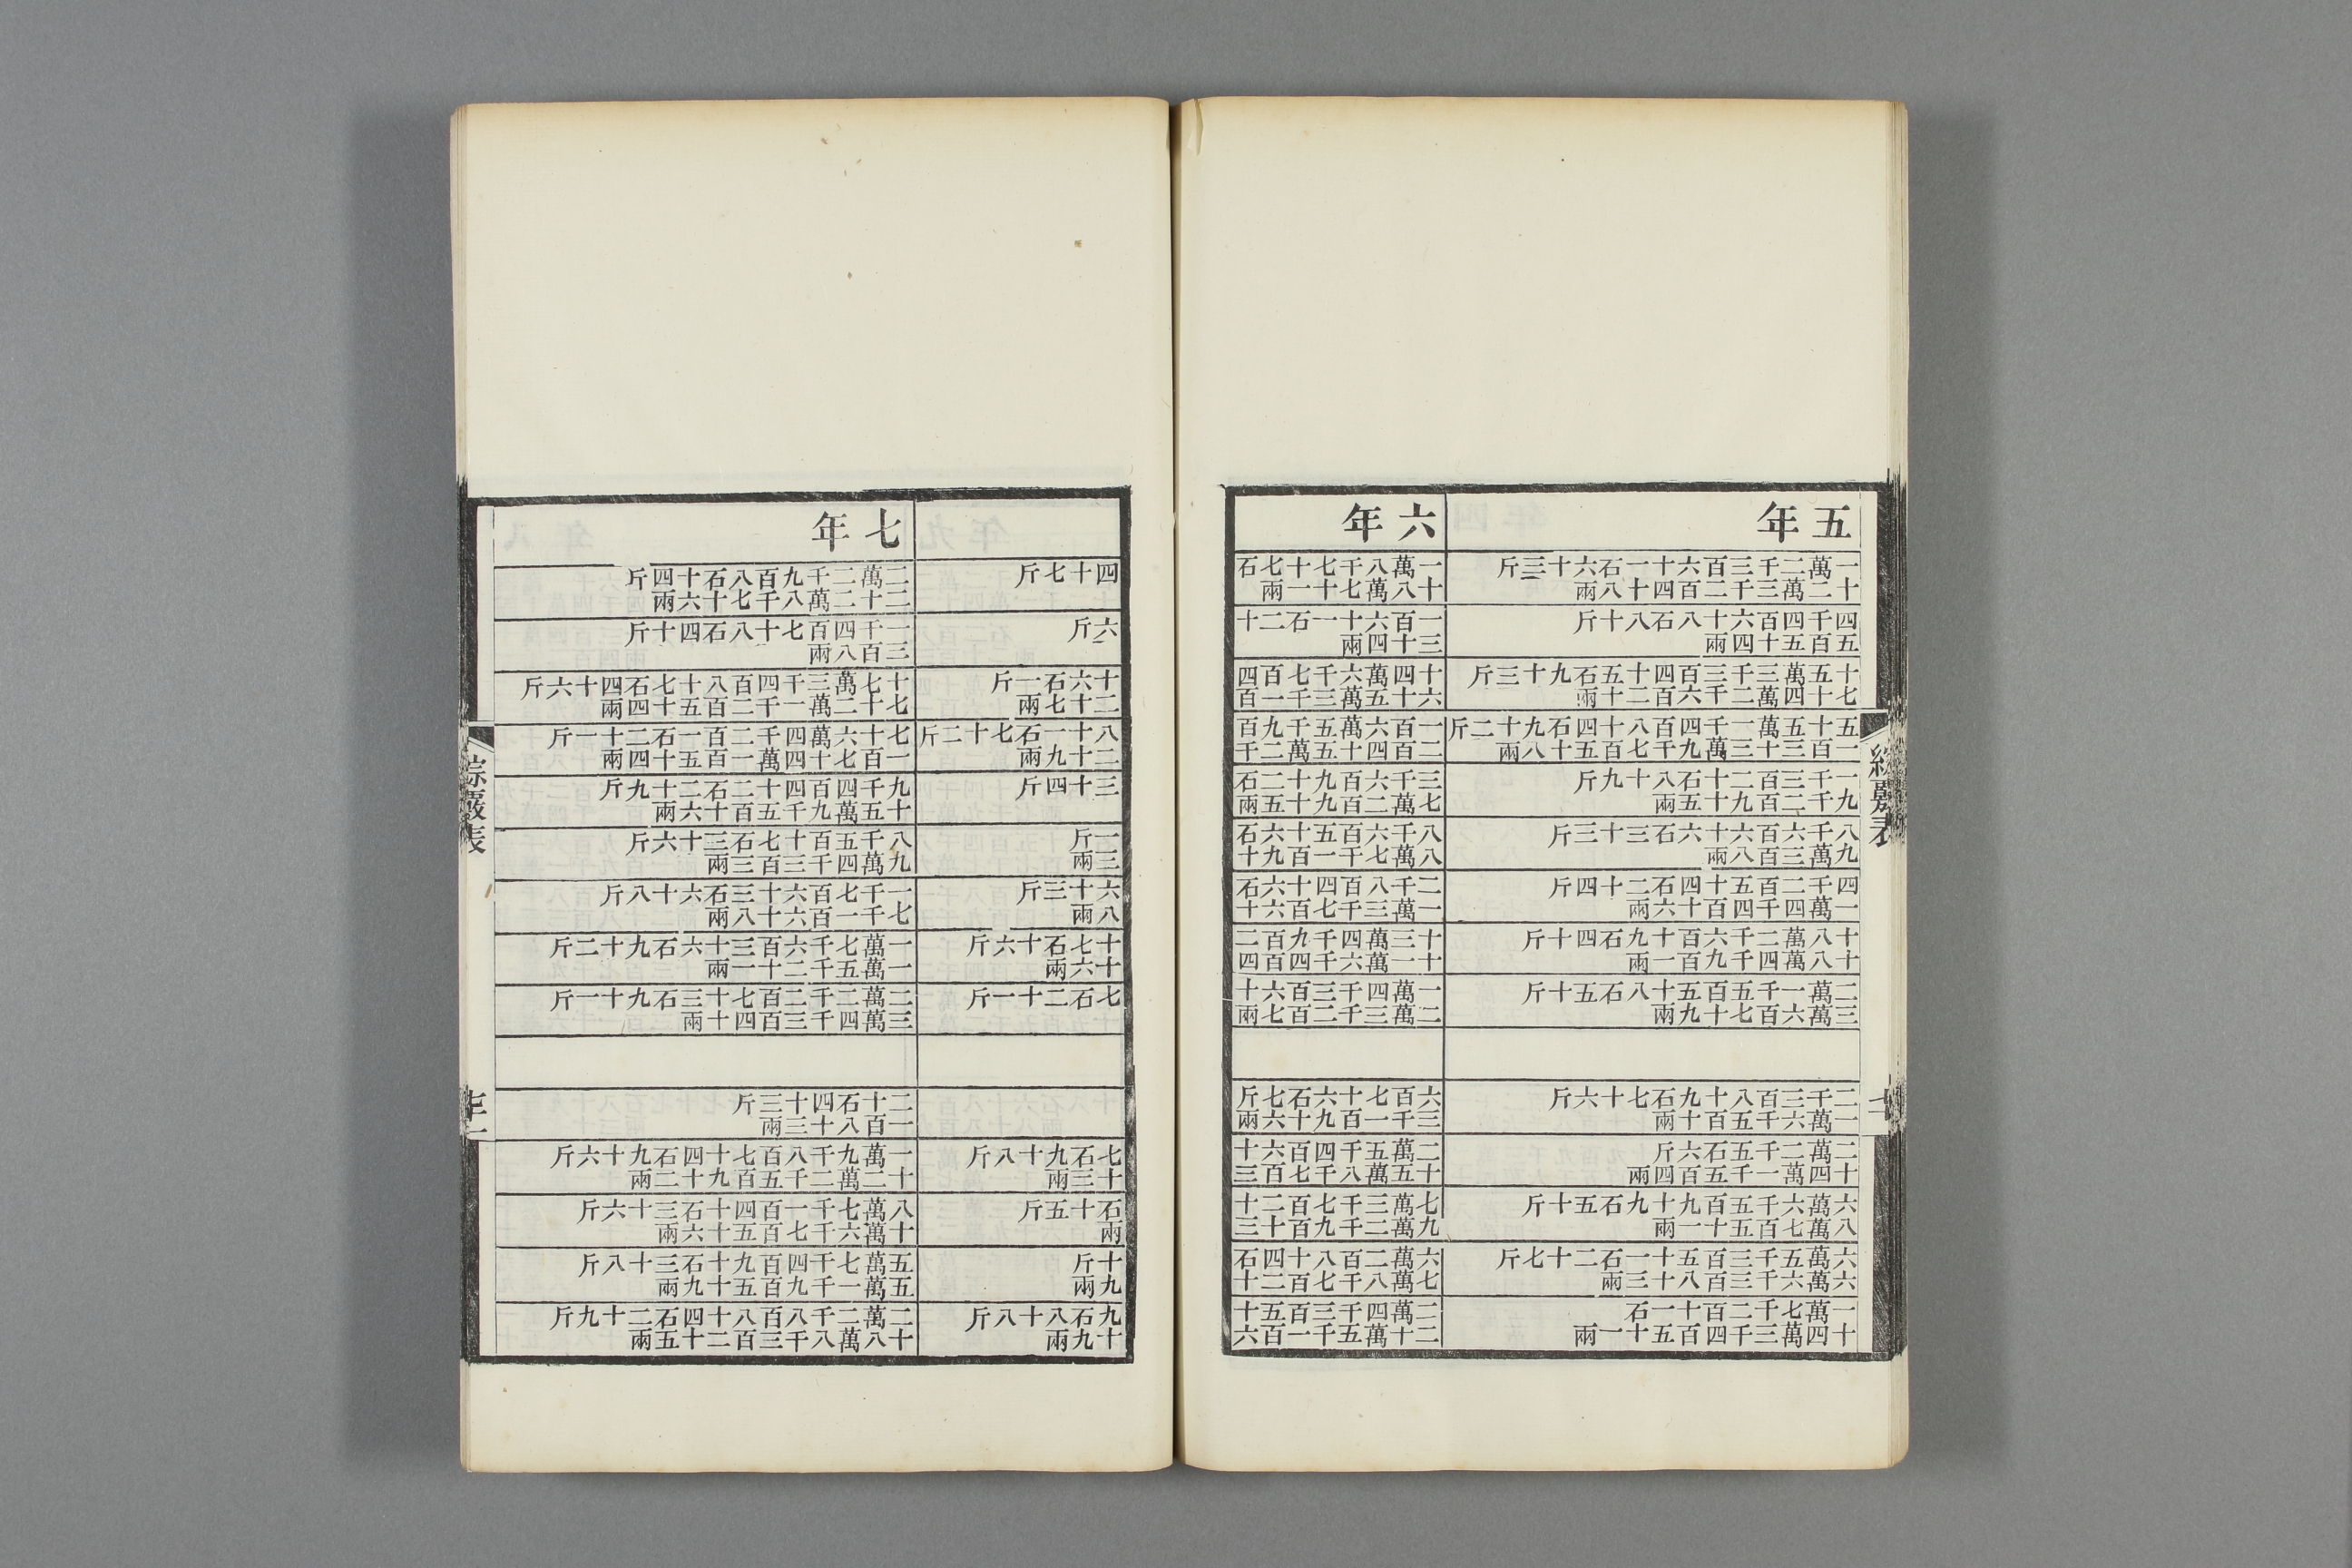 五年
一萬二千三百六十一石六十三斤
十二萬三千二百四十八兩
四千四百六十八石八十斤
五百五十四兩
十五萬三千三百四十五石九十三斤
七十四萬二千六百二十兩
五十五萬一千四百八十四石九十二斤
一百三十三萬九千七百五十八兩
一千三百二十石八十九斤
九千二百九十五兩
八千六百六十六石三十三斤
九萬三百八兩
四千二百五十四石二十四斤
一萬四千四百十六兩
十八萬二千六百十九石四十斤
十八萬四千九百一兩
二萬一千五百五十八石五十斤
三萬六百七十九兩
二千三百八十九石七十六斤
一萬六千五百十兩
二萬二千五石六斤
十四萬一千五百四兩
六萬六千五百九十九石五十斤
八萬七百五十一兩
六萬五千三百五十一石二十七斤
六萬六千三百八十三兩
一萬七千二百十一石
十四萬三千四百五十一兩
六年
一萬八千七十七石
十八萬七十一兩
一百六十一石二十
三十四兩
十四萬六千七百四
六十五萬三千一百
一百六萬五千九百
二百四十五萬二千
三千六百九十二石
七萬二百九十五兩
八千六百五十六石
八萬七千一百九十
二千八百四十六石
一萬三千七百六十
十三萬四千九百二
十一萬六千四百四
一萬四千三百六十
二萬三千二百七兩
六百七十六石七斤
三千一百九十六兩
二萬五千四百六十
十五萬八千七百三
七萬三千七百二十
九萬二千九百十三
六萬二百八十四石
七萬八千七百二十
二萬四千三百五十
二十萬五千一百六
四十七斤
六斤
十六石一斤
二十七兩
八十一石七十二斤
二十九兩
三十四斤
一斤
三兩
六十三斤
八兩
十七石十六斤
十六兩
七石二十一斤
七石九十八斤
十三兩
石十五斤
兩
十斤
九兩
九石八十八斤
十九兩
七年
二萬二千九百八石十四斤
二十二萬八千七十六兩
一千四百七十八石四十斤
三百八兩
十七萬三千四百八十七石四十六斤
七十二萬一千二百五十四兩
七十六萬四千二百一石二十一斤
一百七十四萬一百五十四兩
九千四百四十二石二十九斤
十五萬九千五百十六兩
八千五百十七石三十六斤
九萬四千三百三兩
一千七百六十三石六十八斤
七千一百六十八兩
一萬七千六百三十六石九十二斤
一萬五千二十一兩
二萬二千二百七十三石九十一斤
三萬四千三百四十兩
二十石四十三斤
一百八十三兩
一萬九千八百七十四石九十六斤
十二萬二千五百九十二兩
八萬七千一百四十石三十六斤
十萬六千七百五十六兩
五萬七千四百九十石三十八斤
五萬一千九百五十九兩
二萬二千八百八十四石二十九斤
十八萬八千三百二十五兩
綜覈表